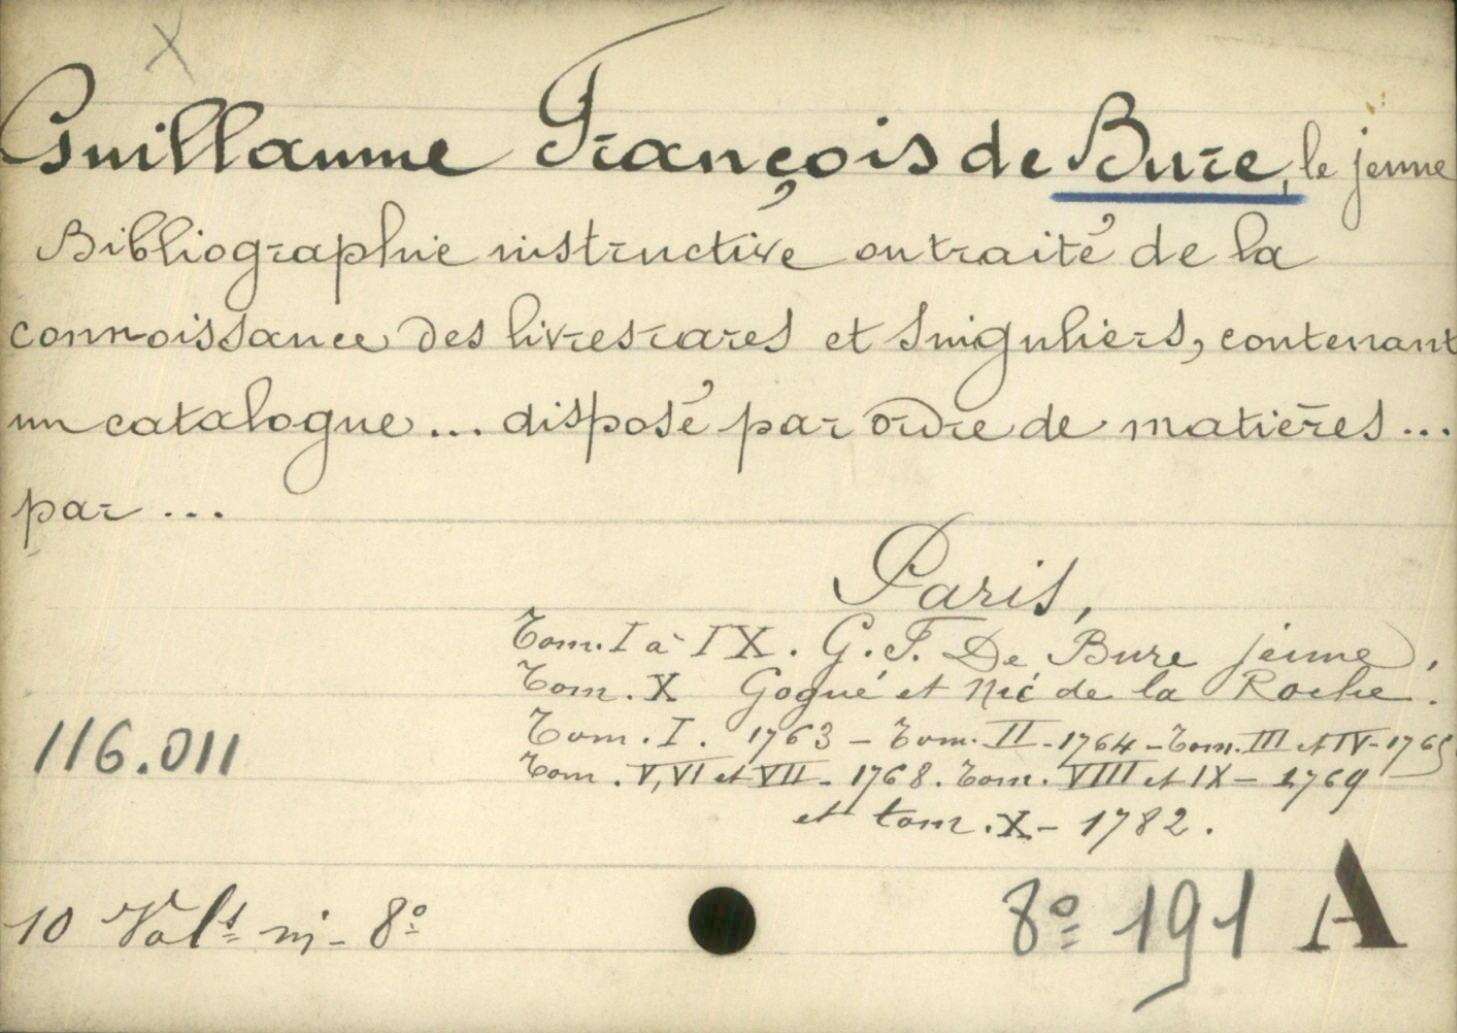 X
Guillaume François de Bure, le jeune
Bibliographie instructive ou traité de la
connoissance des livres rares et singuliers, contenant
un catalogue... disposé par ordre de matières...
par...
Paris,
Tom. I à IX. G. F. De Bure jeune,
Tom. X Gogué et Née de la Roche.
Tom. I. 1763 - Tom. II - 1764 - Tom. III et IV - 1765
Tom. V, VI et VII - 1768. Tom. VIII et IX - 1769
et tom. X - 1782.
116.011
10 Vols in-8º
8º 191 A